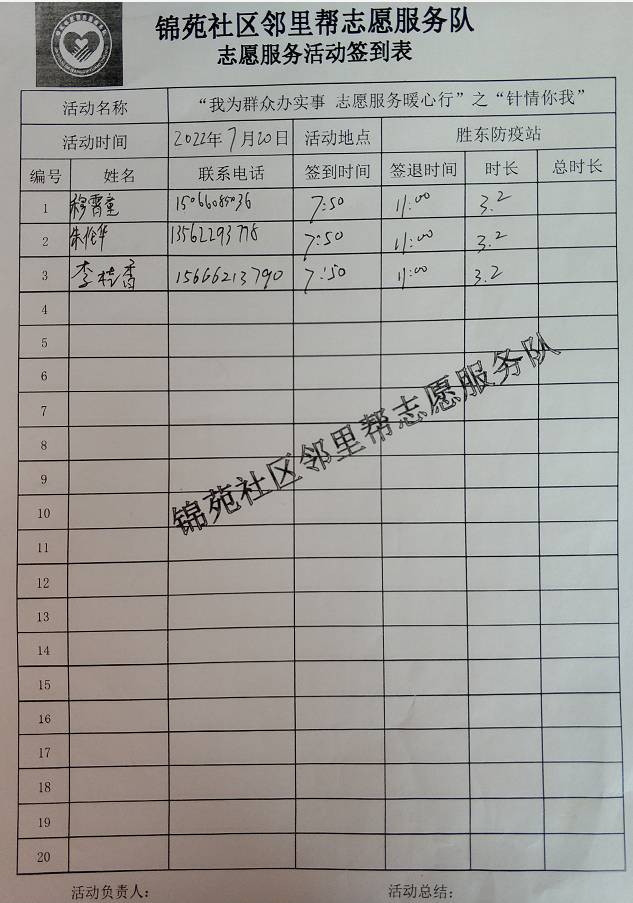 锦苑社区邻里帮志愿服务队
志愿服务活动签到表
活动名称 “我为群众办实事 志愿服务暖心行”之“针情你我”
活动时间 2022年7月20日 活动地点 胜东防疫站
编号 姓名 联系电话 签到时间 签退时间 时长 总时长
1 7:50 11:00 3.2
2 7:50 11:00 3.2
3 李桂香 15666213790 7:50 11:00 3.2
4
5
6
7
8
9
10
11
12
13
14
15
16
17
18
19
20
锦苑社区邻里帮志愿服务队
活动负责人： 活动总结：